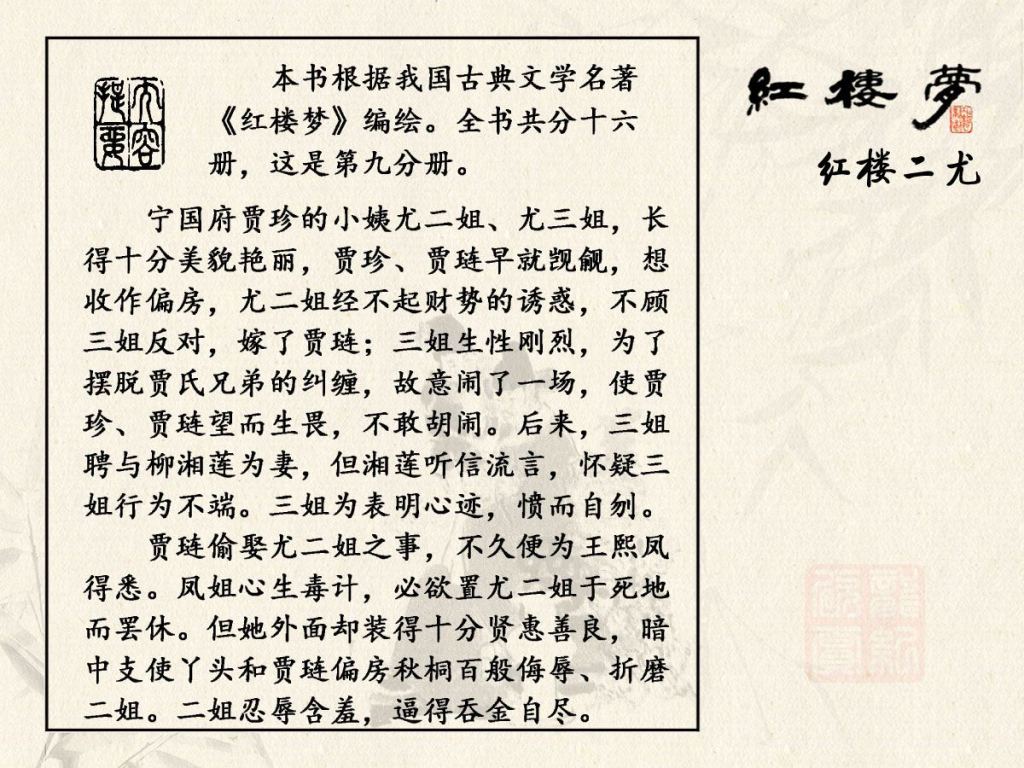 内容
提要
本书根据我国古典文学名著
《红楼梦》编绘。全书共分十六
册，这是第九分册。
宁国府贾珍的小姨尤二姐、尤三姐，长
得十分美貌艳丽，贾珍、贾琏早就觊觎，想
收作偏房，尤二姐经不起财势的诱惑，不顾
三姐反对，嫁了贾琏；三姐生性刚烈，为了
摆脱贾氏兄弟的纠缠，故意闹了一场，使贾
珍、贾琏望而生畏，不敢胡闹。后来，三姐
聘与柳湘莲为妻，但湘莲听信流言，怀疑三
姐行为不端。三姐为表明心迹，愤而自刎。
贾琏偷娶尤二姐之事，不久便为王熙凤
得悉。凤姐心生毒计，必欲置尤二姐于死地
而罢休。但她外面却装得十分贤惠善良，暗
中支使丫头和贾琏偏房秋桐百般侮辱、折磨
二姐。二姐忍辱含羞，逼得吞金自尽。
紅樓夢
红楼二尤